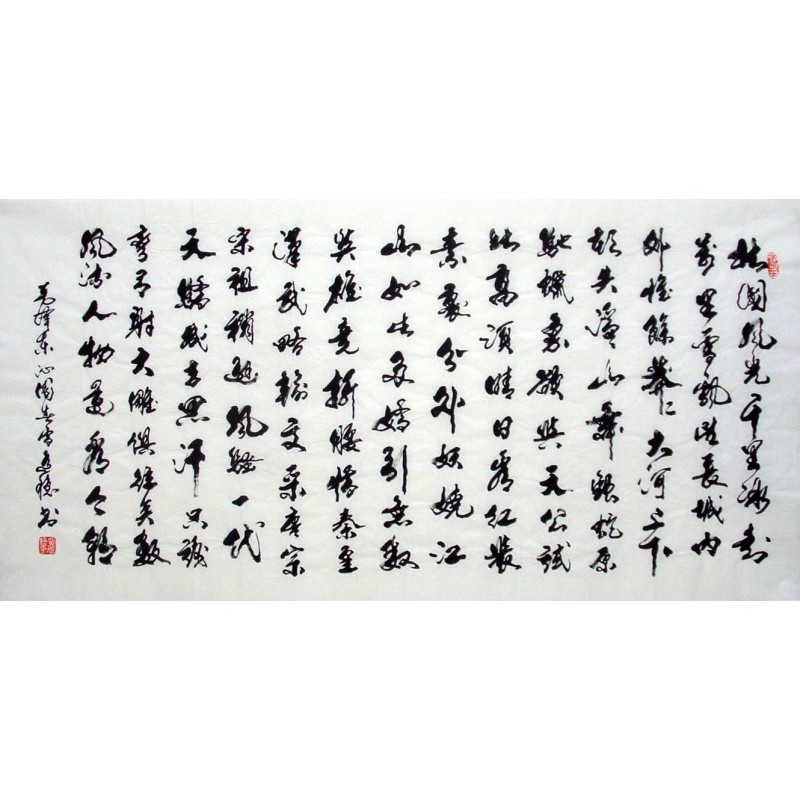 北國風光千里冰封
萬里雪飄望長城内
外惟餘莽々大河上下
頓失滔山舞銀蛇原
馳蠟象欲與天公試
比高須晴日看紅裝
素裹分外妖嬈江
山如此多嬌引無數
英雄竟折腰惜秦皇
漢武略輸文采唐宗
宋祖稍遜風騷一代
天驕成吉思汗只識
彎弓射大雕俱往矣數
風流人物還看今朝
毛澤東沁園春雪 書